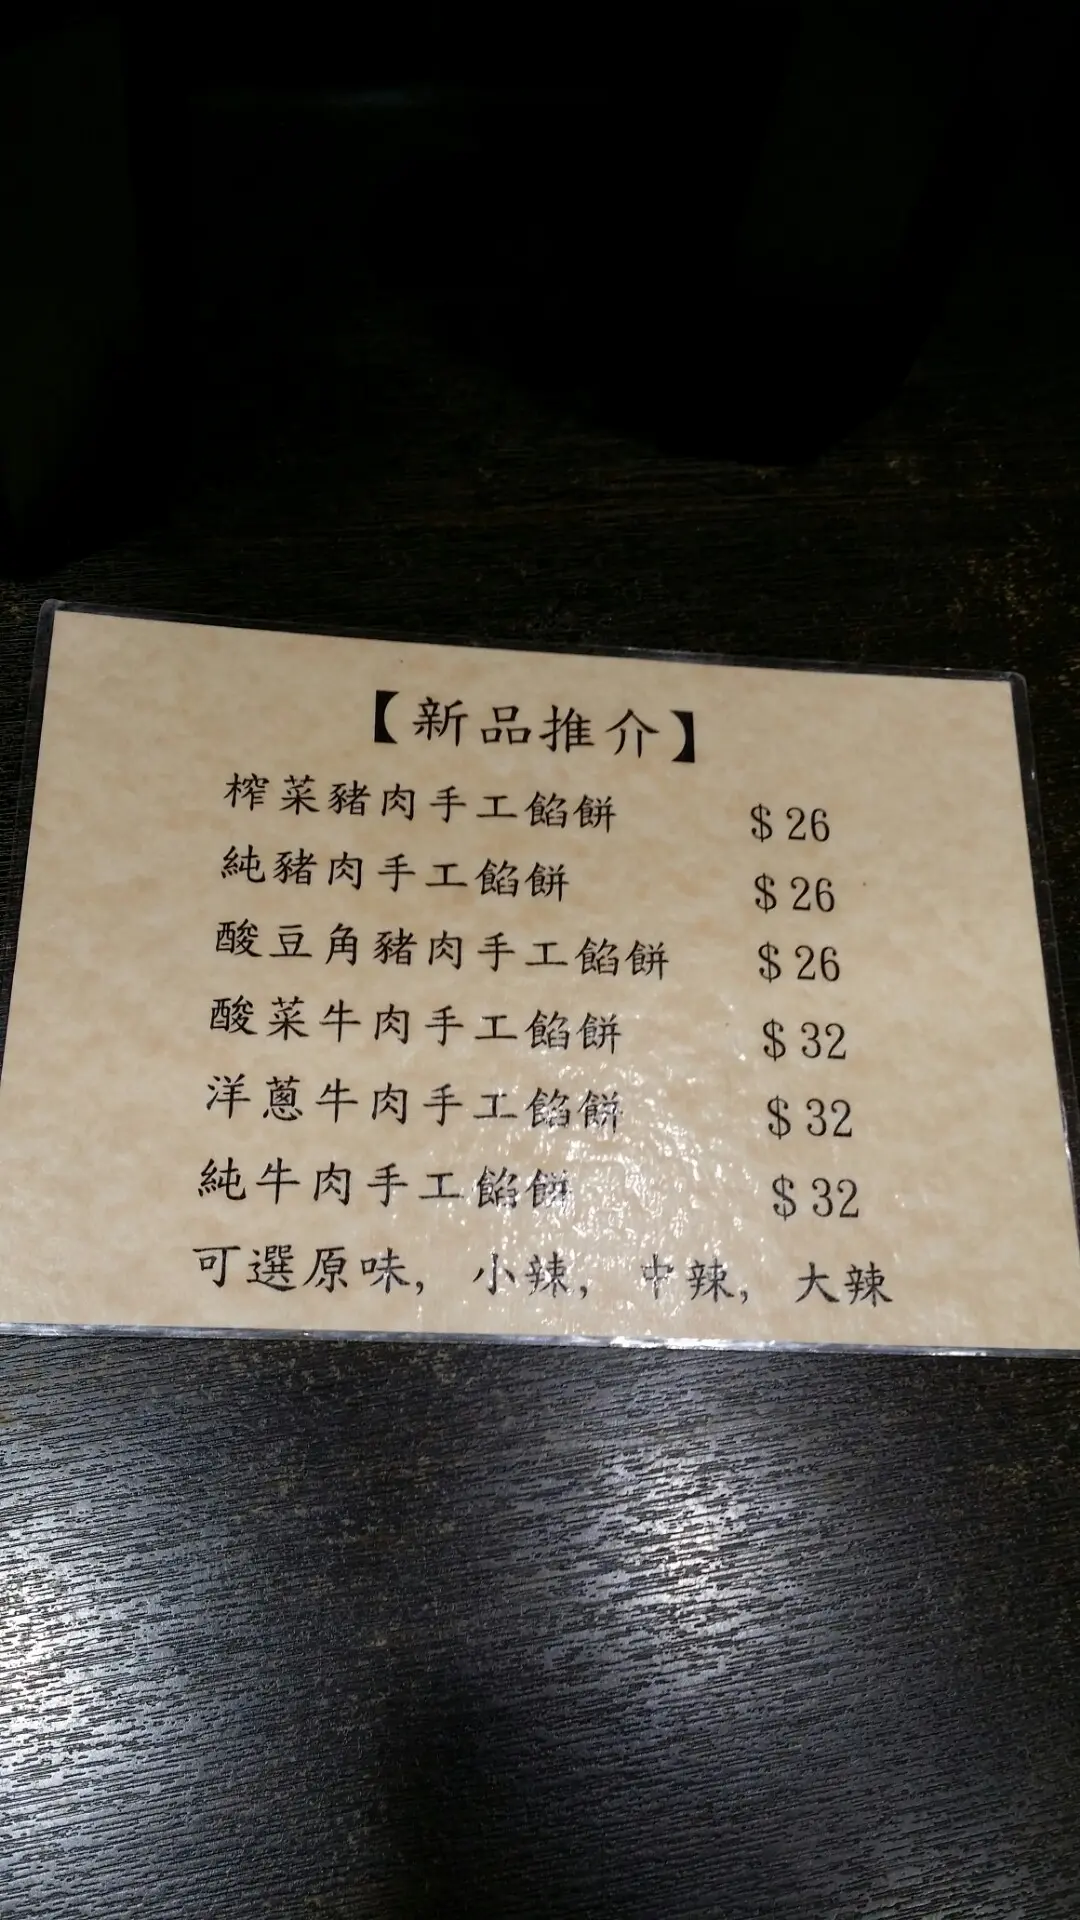 【新品推介】
榨菜豬肉手工餡餅 $26
純豬肉手工餡餅 $26
酸豆角豬肉手工餡餅 $26
酸菜牛肉手工餡餅 $32
洋蔥牛肉手工餡餅 $32
純牛肉手工餡餅 $32
可選原味, 小辣, 中辣, 大辣